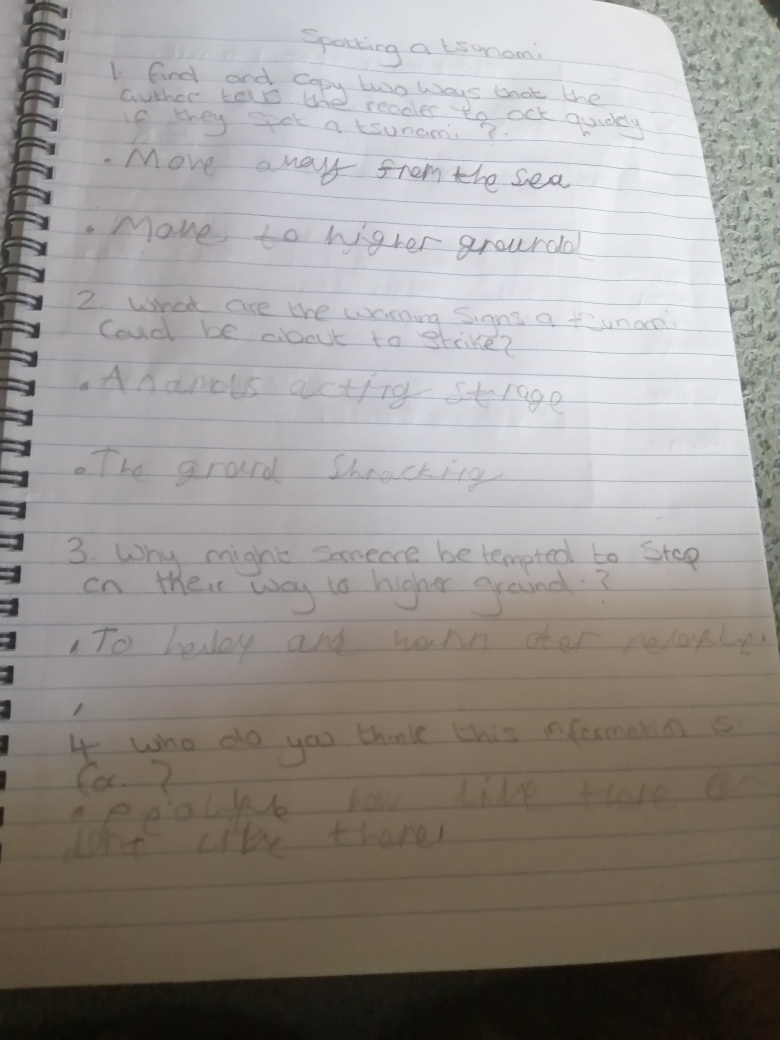 Spotting a tsunami
1. Find and copy two ways that the
author tells the reader to act quickly
if they spot a tsunami?
• Move away from the sea
• Move to higher ground
2. What are the warning signs a tsunami
could be about to strike?
• acting
• The Shracking
3. Why might someone be tempted to stop
on their way to higher ground?
• To and
4. Who do you think this information is
for?
• live there or
dont like there